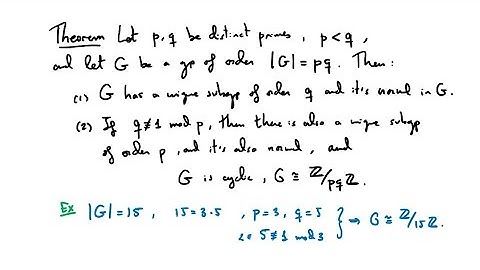 Theorem Let p, q be distinct primes, p < q,
and let G be a gp of order |G| = pq. Then:
(1) G has a unique subgp of order q and it's normal in G.
(2) If q ≢ 1 mod p, then there is also a unique subgp
of order p, and it's also normal, and
G is cyclic, G ≅ ℤ/pqℤ.
Ex |G| = 15, 15 = 3·5, p = 3, q = 5 } ⇒ G ≅ ℤ/15ℤ.
2 ≡ 5 ≢ 1 mod 3